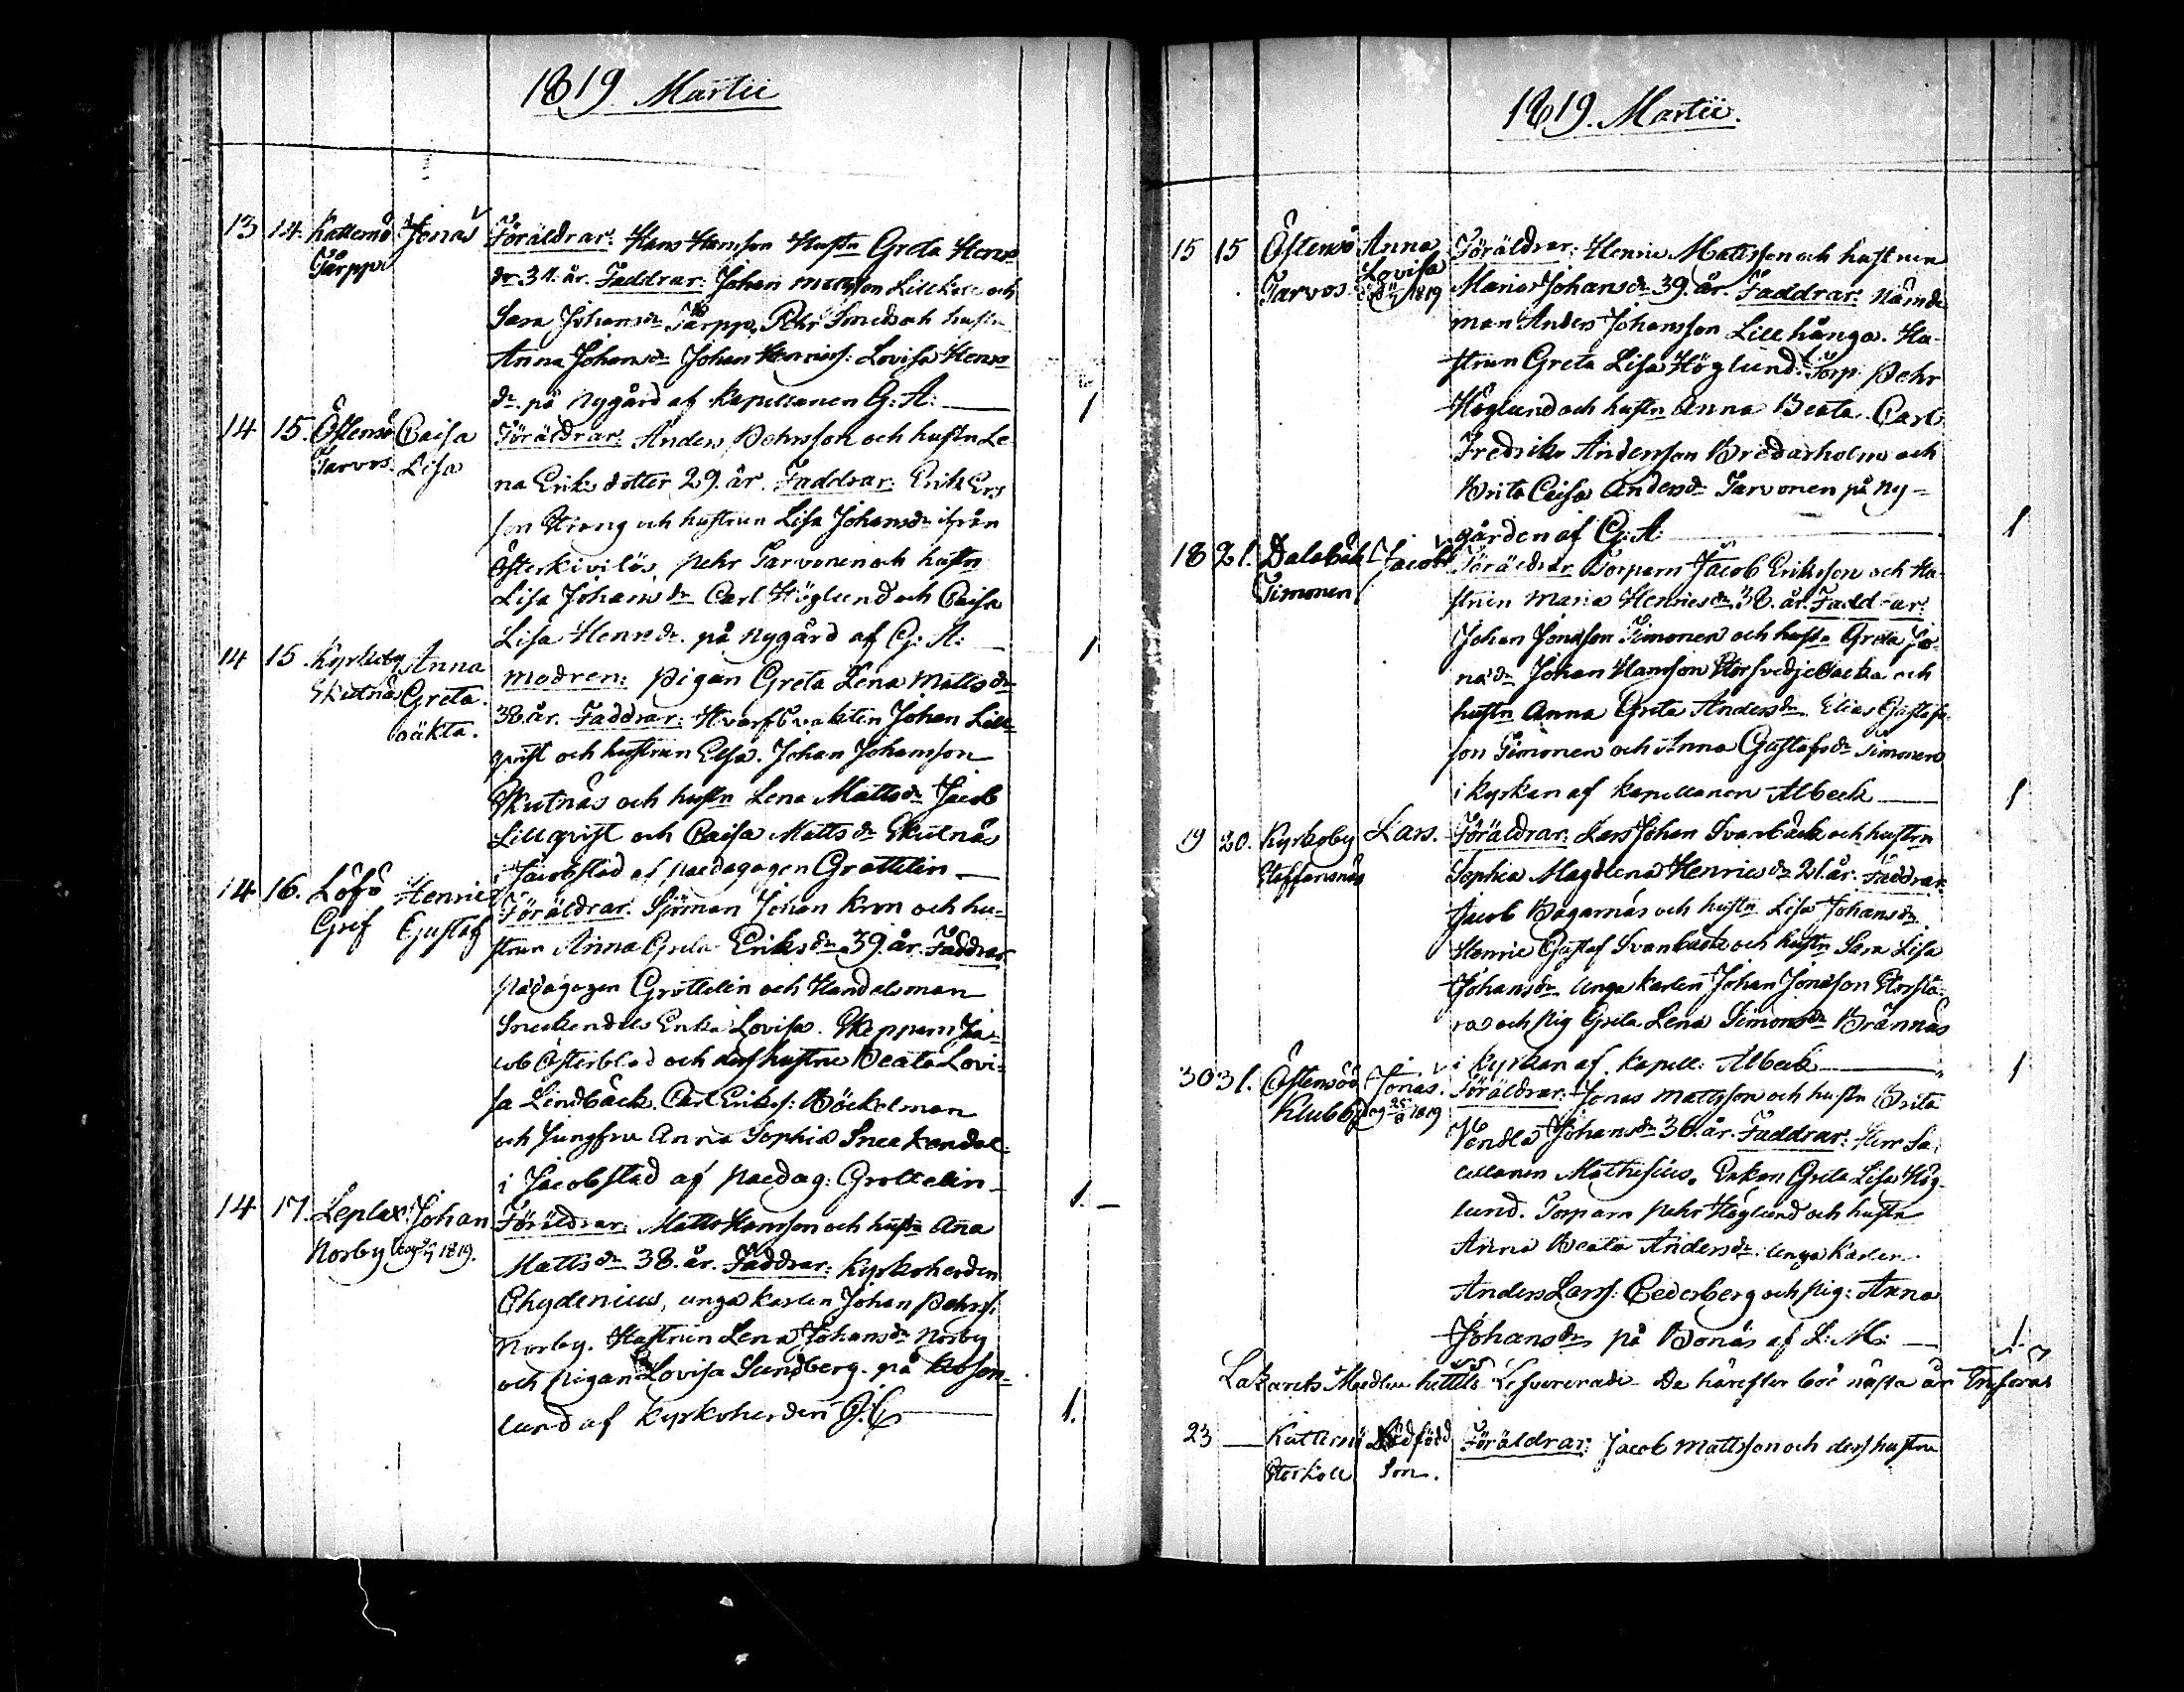 1819 Martii
13 14. Katternö Jonas Föräldrar: Hans Hansson Hustn Greta Henr
Tarppi dr 31. år. Faddrar: Johan Mattsson Lillkåll och
Sara Johansdr Tarpp, Pehr Smeds och hustn
Anna Johansdr Johan Henricss: Lovisa Henr
dr på Nygård af Kapellanen G: A: 1
14 15. Östensö Caisa Föräldrar: Anders Pehrsson och hustn Le
Tarvos. Lisa na Eriksdotter 29. år. Faddrar: Erik Ers
son Streng och hustrun Lisa Johansdr ifrån
Österkivilös, Pehr Tarvonen och hustn
Lisa Johansdr Carl Höglund och Caisa
Lisa Henrdr. på Nygård af G: A: 1
14 15. Kyrkoby Anna Modren: Pigan Greta Lena Mattsdr
Skutnäs Greta. 38 år. Faddrar: Johan Lill
oäkta. qvist och hustrun Elsa. Johan Johansson
Skutnäs och hustn Lena Mattsdr Jacob
Lillqvist och Caisa Mattsdr Skutnäs
i Jacobstad af Paedagogen Grottelin
14 16. Löfö Henric Föräldrar: Sjöman Johan Kron och hu-
Gref Gustaf strun Anna Greta Eriksdr 39. år. Faddrar
Pädagogen Grottelin och Handelsman
Sneckendals Enka Lovisa. Skepparn Ja-
cob Österblad och dess hustru Beata Lovi-
sa Lindbäck. Carl Eriks: Böckelman
och Jungfru Anna Sophia Sneckendal:
i Jacobstad af Paedag: Grottelin 1.
14 17. Leplax Johan Föräldrar: Matts Hansson och hustn Ana
Norby 1819. Mattsdr 38. år. Faddrar: Kyrkoherden
Chydenius, unga karlen Johan Pehrss:
Norby. Hustrun Lena Johansdr Norby
och Pigan Lovisa Sundberg. på Rosen-
lund af Kyrkoherden J. C. 1.
1819. Martii.
15 15 Östensö Anna Föräldrar: Henric Mattsson och hustrun
Tarvos. Lovisa 1819 Maria Johansdr 39. år. Faddrar: Nämde
man Anders Johansson Lillhånga. Hu-
strun Greta Lisa Höglund. Torp: Pehr
Höglund och hustn Anna Beata. Carl
Fredrik Andersson Bredarholm och
Brita Caisa Andersdr Tarvonen på Ny-
gården af G: A: 1
18 21. Dalabäck Jacob Föräldrar Torparn Jacob Eriksson och Hu
Timonen strun Maria Henricsdr 38. år. Faddrar:
Johan Jonasson Timonen och hustn Greta Jo-
nasdr Johan Hansson Storsvedjebacka och
hustn Anna Greta Andersdr Elias Gustafs-
son Timonen och Anna Gustafsdr Timonen
i Kyrkan af Kapellanen Albeck 1
19 20. Kyrkoby Lars. Föräldrar: Lars Johan Svanbäck och hustrn
Staffansnäs Sophia Magdlena Henricsdr 21. år. Faddrar
Jacob Bagarnäs och hustn Lisa Johansdr
Henric Gustaf Svanbäck och hustn Sara Lisa
Johansdr Unga karlen Johan Jonasson Storsta-
ra och pig Greta Lena Simonsdr Brännäs
i Kyrkan af Kapell: Albeck 1
30 31. Östensö Jonas. Föräldrar: Jonas Mattsson och hustn Brita
Klubb 25/8 1819 Vendla Johansdr 36. år. Faddrar: Herr Sa:
cellanen Mathesius. Enkan Greta Lisa Hög
lund. Torparn Pehr Höglund och hustn
Anna Beata Andersdr. Unga Karlen
Anders Larss: Cederberg och pig: Anna
Johansdr på Bonäs af L: M: 1.
Lazarets Medlen hittils Lefvererade De härefter bör nästa år införas
23 Katternö Dödfödd Föräldrar: Jacob Mattsson och dess hustru
Storkåll Son.